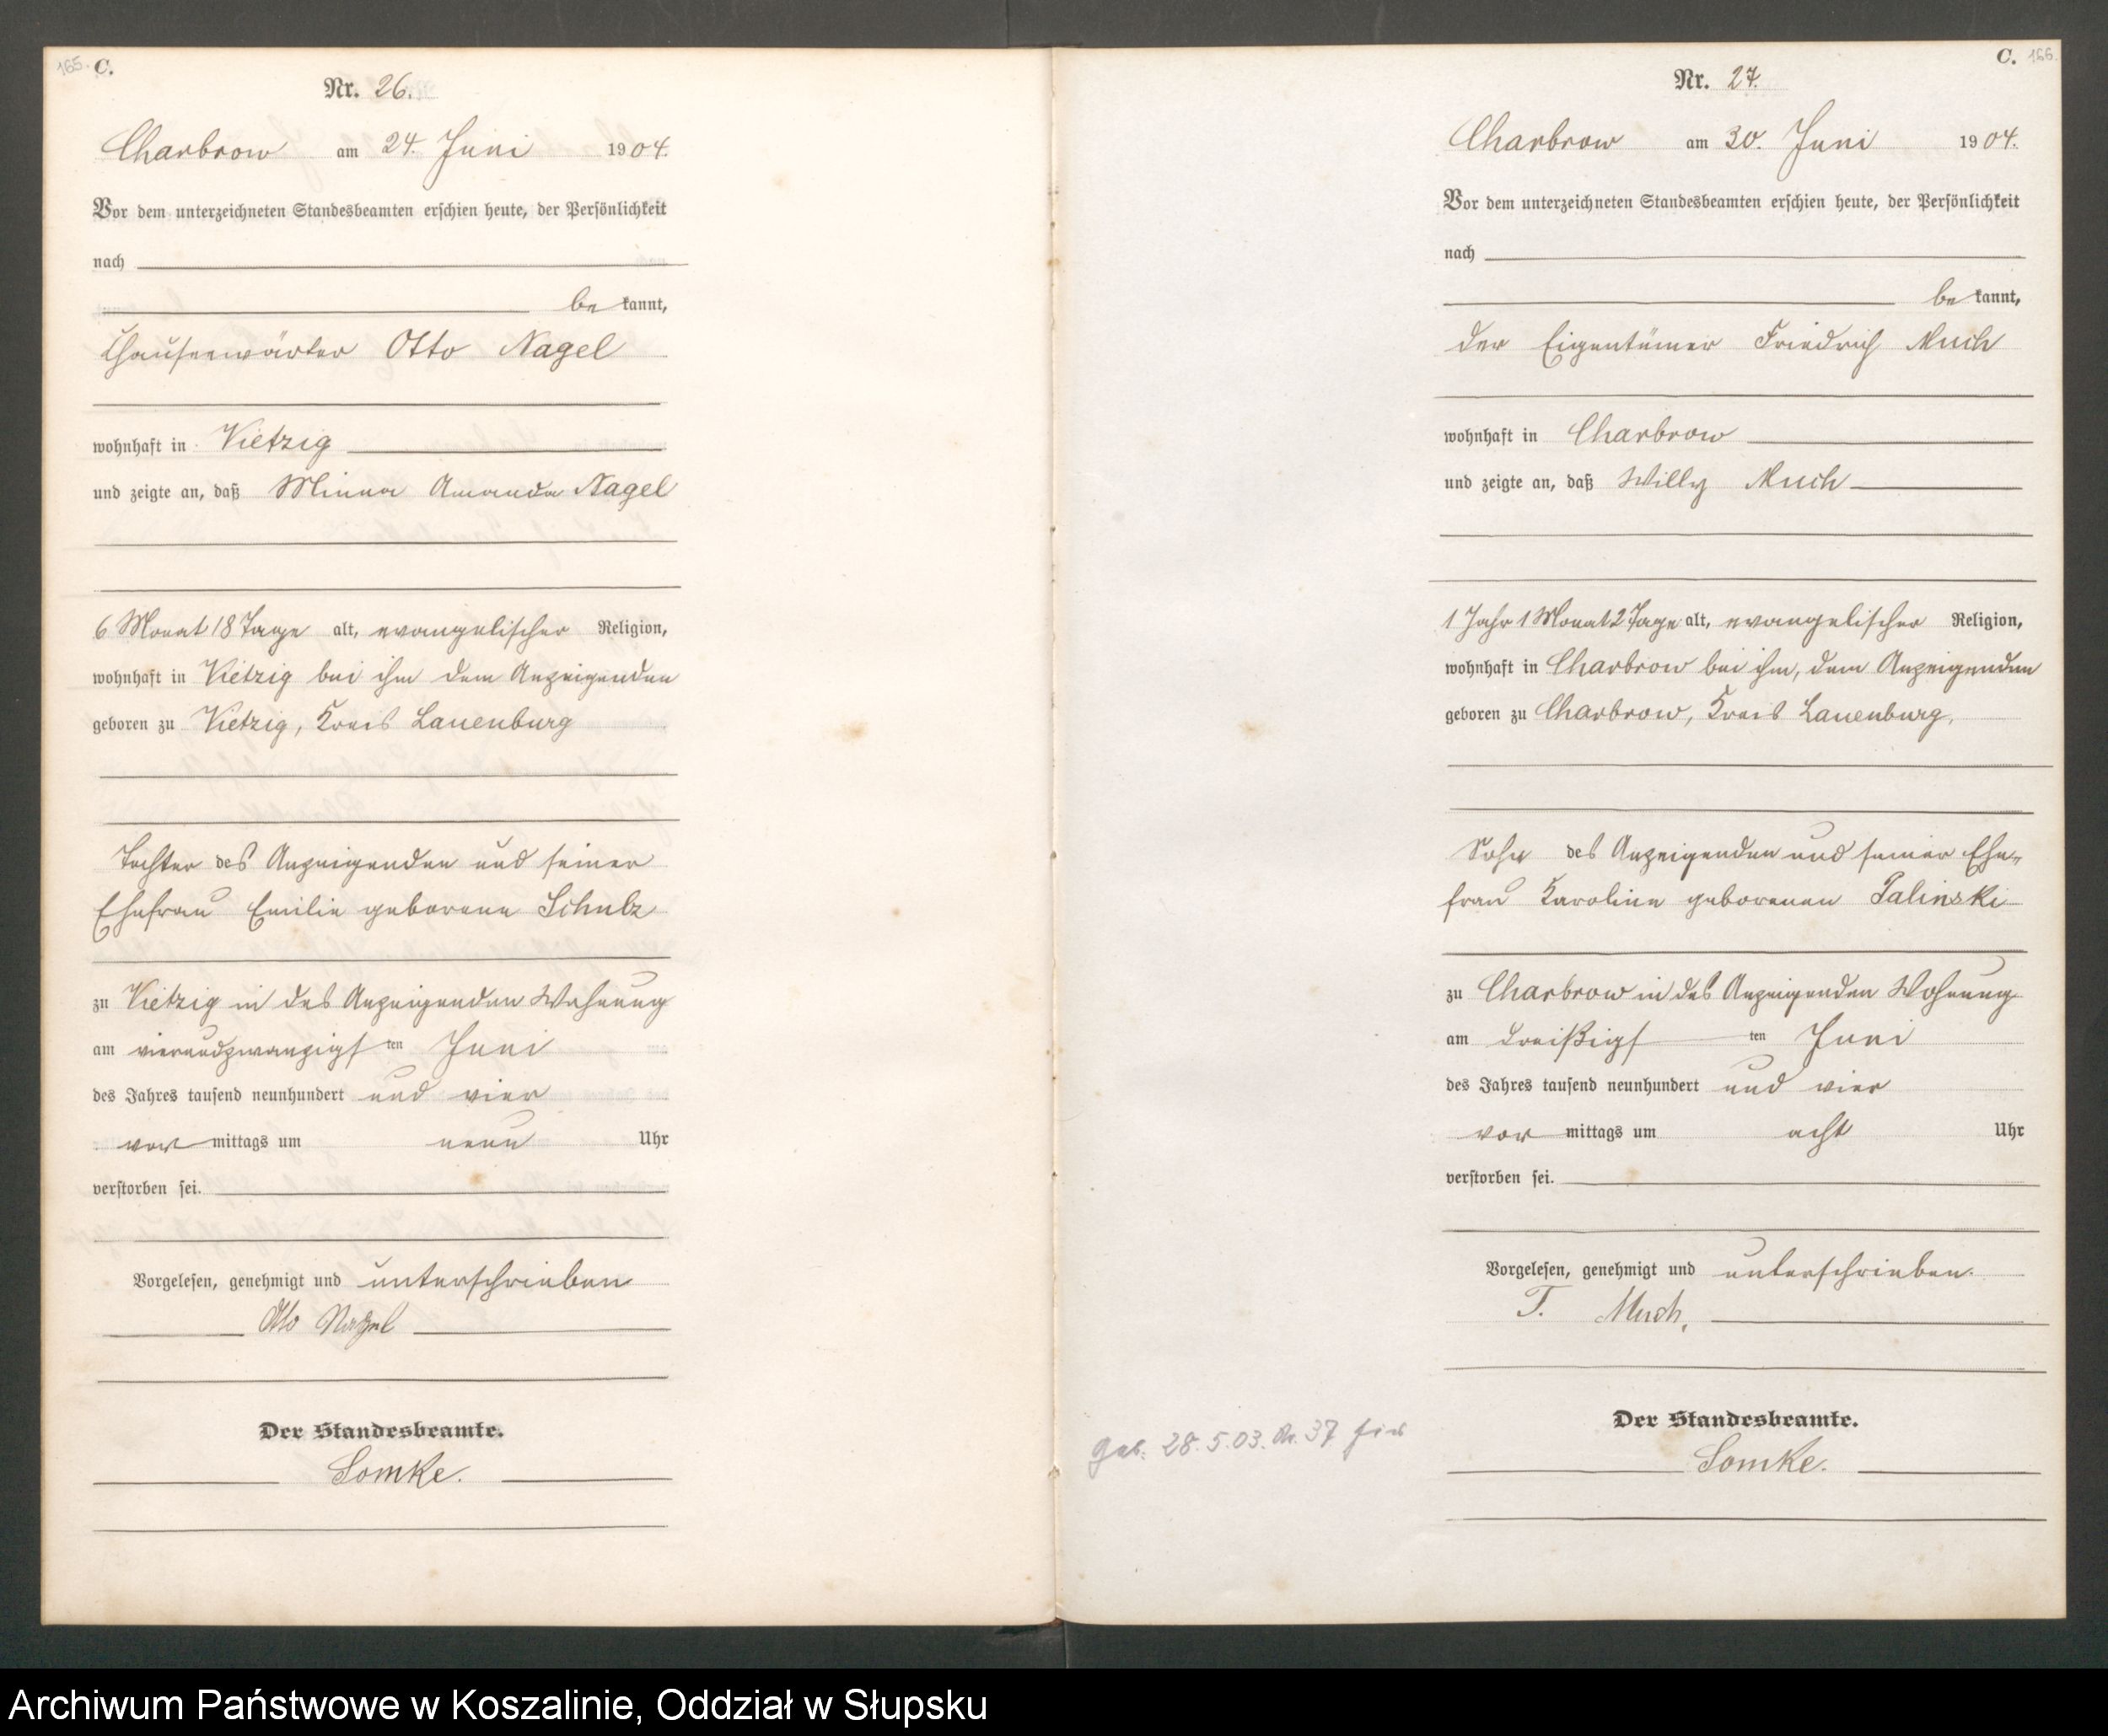 165. C.
Nr. 26.
Charbrow am 24. Juni 1904.
Vor dem unterzeichneten Standesbeamten erschien heute, der Persönlichkeit
nach
be kannt,
Chausseewärter Otto Nagel
wohnhaft in Vietzig
und zeigte an, daß Minna Amanda Nagel
6 Monat 18 Tage alt, evangelischer Religion,
wohnhaft in Vietzig bei ihm dem Anzeigenden
geboren zu Vietzig, Kreis Lauenburg
Tochter des Anzeigenden und seiner
Ehefrau Emilie geborene Schulz
zu Vietzig in des Anzeigenden Wohnung
am vierundzwanzigsten Juni
des Jahres tausend neunhundert und vier
vor mittags um neun Uhr
verstorben sei.
Vorgelesen, genehmigt und unterschrieben
Otto Nagel
Der Standesbeamte.
Lomke.
C. 166.
Nr. 27.
Charbrow am 30. Juni 1904.
Vor dem unterzeichneten Standesbeamten erschien heute, der Persönlichkeit
nach
be kannt,
der Eigentümer Friedrich Much
wohnhaft in Charbrow
und zeigte an, daß Willy Much
1 Jahr 1 Monat 2 Tage alt, evangelischer Religion,
wohnhaft in Charbrow bei ihm, dem Anzeigenden
geboren zu Charbrow, Kreis Lauenburg,
Sohn des Anzeigenden und seiner Ehe-
frau Karoline geborenen Palinski
zu Charbrow in des Anzeigenden Wohnung
am dreißigsten Juni
des Jahres tausend neunhundert und vier
vor mittags um acht Uhr
verstorben sei.
Vorgelesen, genehmigt und unterschrieben.
F. Much.
Der Standesbeamte.
Lomke.
Geb. 28.5.03. Nr. 37 hier
Archiwum Państwowe w Koszalinie, Oddział w Słupsku